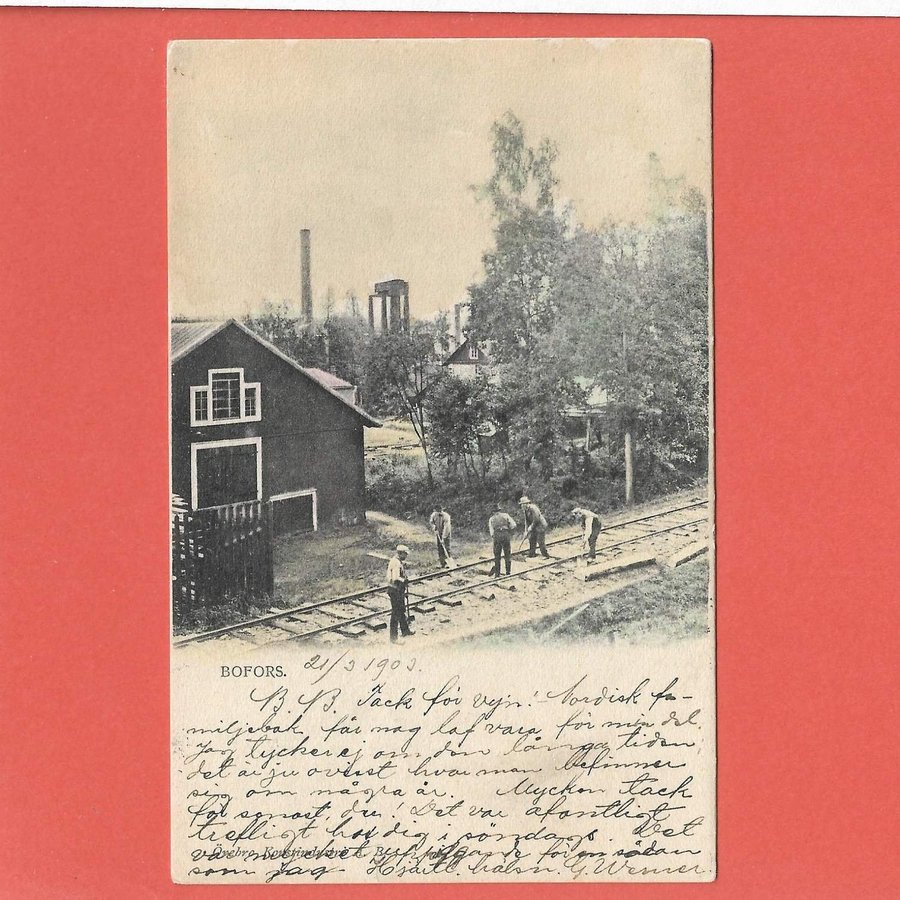 BOFORS. 21/3 1903.
B. B. Tack för vyn! Nordisk fa-
miljebok får nog lof vara för min del.
Jag tycker ej om den långa tiden,
det är ju ovisst hvar man befinner
sig om några år. Mycken tack
för senast, du! Det var ofantligt
trefligt hos dig i söndags. Det
var för en sådan
Örebro Konstindustri A. B.
som jag. Hjärtl. hälsn. G. Werner.